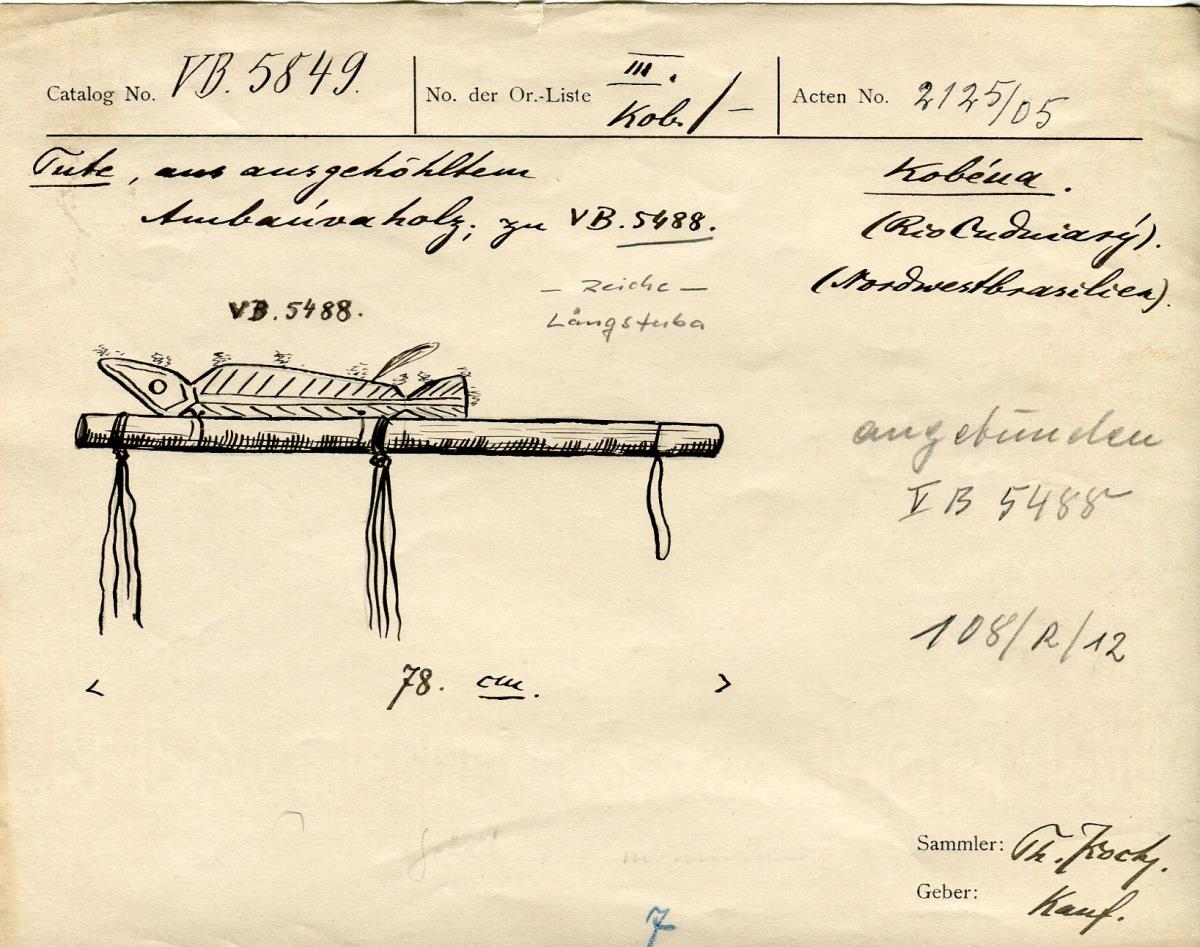 Catalog No. VB. 5849.
No. der Or.-Liste III. Kob. / –
Acten No. 2125/05
Tute, aus ausgehöhltem
Ambaúvaholz; zu VB. 5488.
Kobéua.
(Rio Cuduiarý).
(Nordwestbrasilien).
– Zeiche –
Längstuba
VB. 5488.
angebunden
VB 5488
108/R/12
78. cm.
Sammler: Th. Koch.
Geber: Kauf.
7